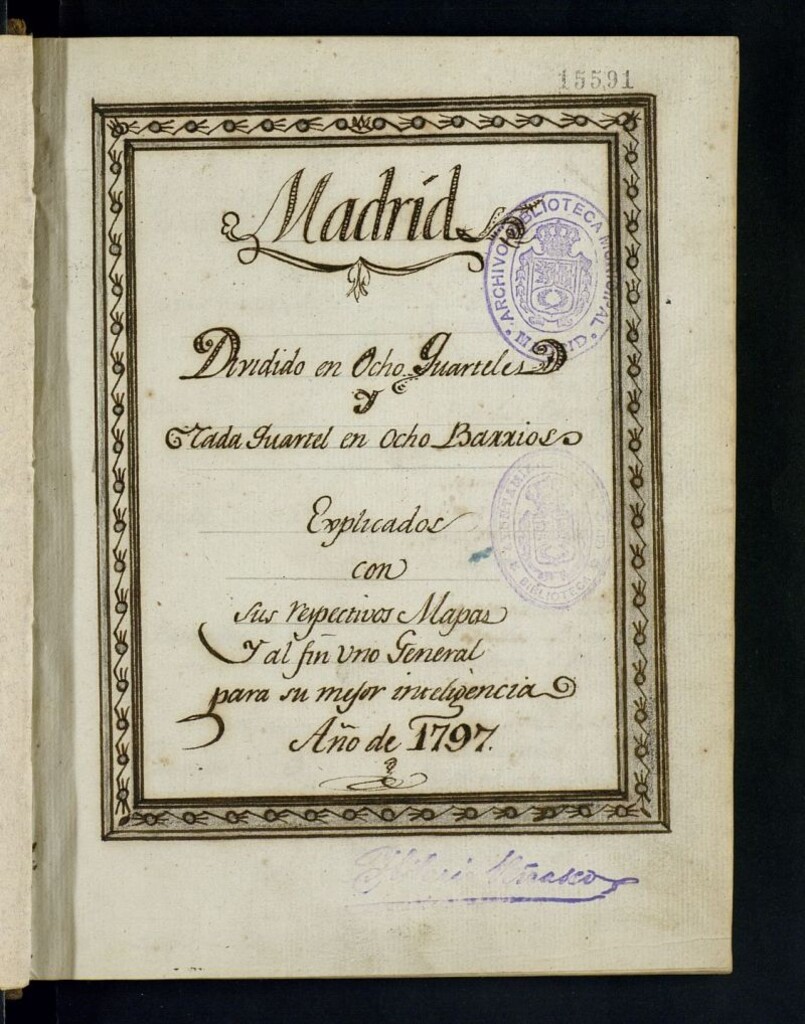 15591
Madrid
ARCHIVO BIBLIOTECA MUNICIPAL
MADRID
Dividido en Ocho Quarteles
Y
Cada Quartel en Ocho Barrios
Explicados
con
sus respectivos Mapas
Y al fin Uno General
para su mejor inteligencia
Año de 1797.
BIBLIOTECA